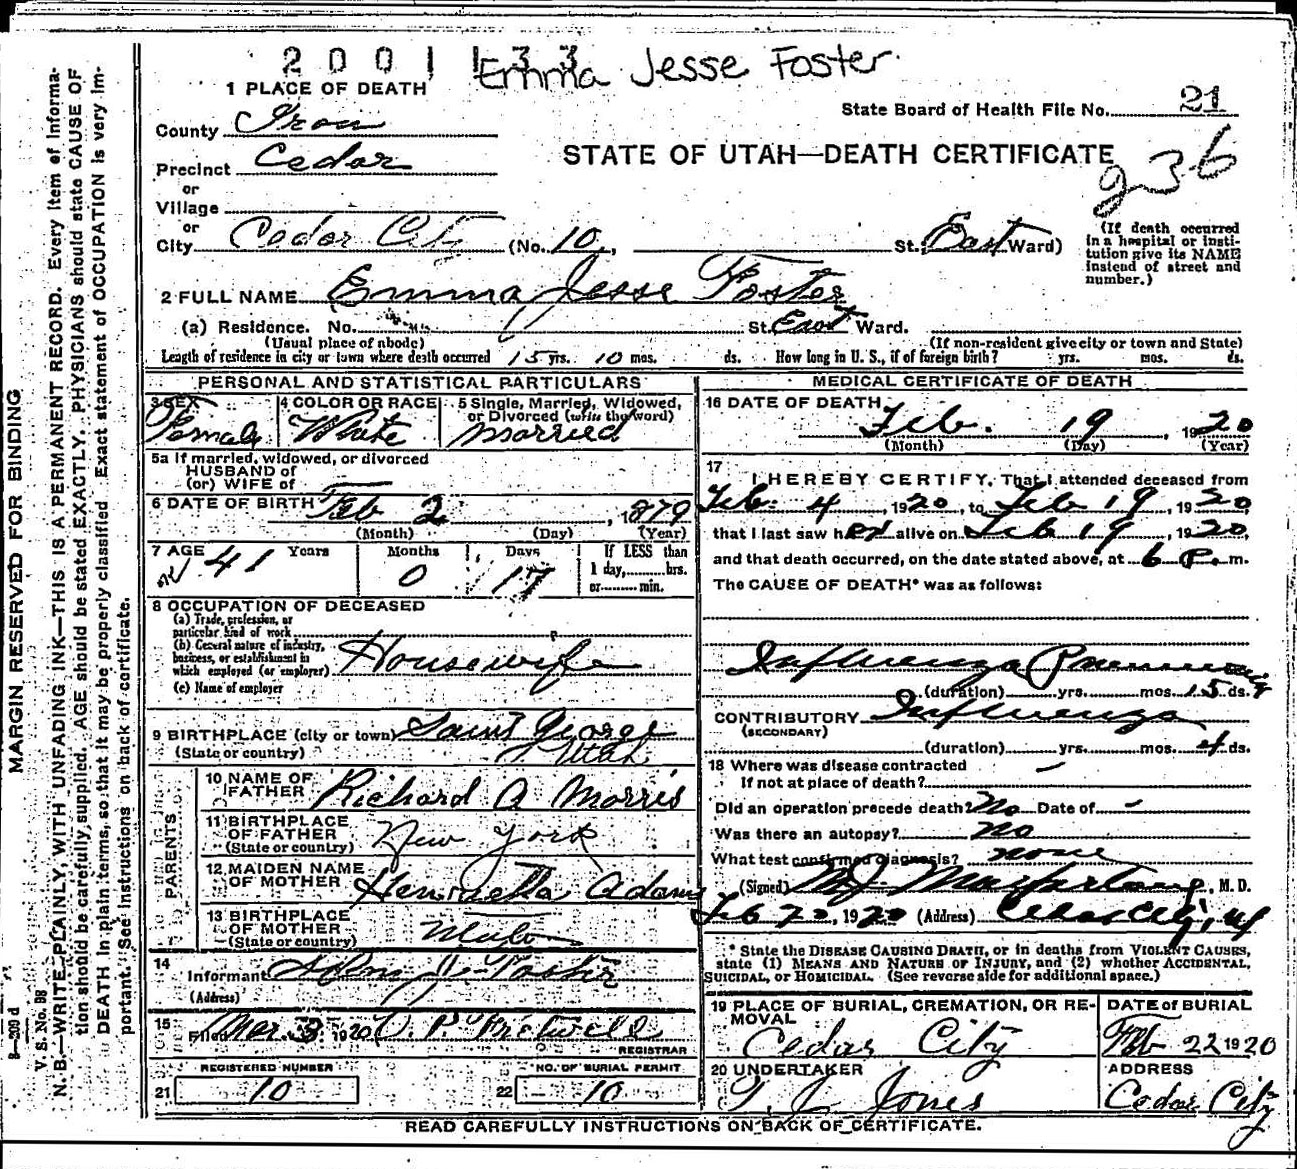 2001133 Emma Jesse Foster
1 PLACE OF DEATH
State Board of Health File No. 21
County Iron
STATE OF UTAH—DEATH CERTIFICATE
236
Precinct Cedar
or
Village
or
City Cedar City (No. 10, St. East Ward)
(If death occurred
in a hospital or insti-
tution give its NAME
instead of street and
number.)
2 FULL NAME Emma Jesse Foster
(a) Residence. No. St. East Ward.
(Usual place of abode) (If non-resident give city or town and State)
Length of residence in city or town where death occurred 15 yrs. 10 mos. ds. How long in U. S., if of foreign birth? yrs. mos. ds.
PERSONAL AND STATISTICAL PARTICULARS
3 SEX 4 COLOR OR RACE 5 Single, Married, Widowed,
or Divorced (write the word)
Female White Married
5a If married, widowed, or divorced
HUSBAND of
(or) WIFE of
6 DATE OF BIRTH Feb 2, 1879
(Month) (Day) (Year)
7 AGE 41 Years 0 Months 17 Days
If LESS than
1 day, hrs.
or min.
8 OCCUPATION OF DECEASED
(a) Trade, profession, or
particular kind of work
(b) General nature of industry,
business, or establishment in
which employed (or employer) Housewife
(c) Name of employer
9 BIRTHPLACE (city or town) Saint George
(State or country) Utah
PARENTS
10 NAME OF
FATHER Richard A Morris
11 BIRTHPLACE
OF FATHER New York
(State or country)
12 MAIDEN NAME
OF MOTHER Henrietta Adams
13 BIRTHPLACE
OF MOTHER
(State or country)
14
Informant John J. Foster
(Address)
15
Filed Mar. 3, 1920
REGISTRAR
REGISTERED NUMBER NO. OF BURIAL PERMIT
21 10 22 10
MEDICAL CERTIFICATE OF DEATH
16 DATE OF DEATH
Feb. 19, 1920
(Month) (Day) (Year)
17
I HEREBY CERTIFY, That I attended deceased from
Feb. 4, 1920, to Feb 19, 1920,
that I last saw her alive on Feb 19, 1920,
and that death occurred, on the date stated above, at 6 P. m.
The CAUSE OF DEATH* was as follows:
Influenza Pneumonia
(duration) yrs. mos. 15 ds.
CONTRIBUTORY Influenza
(SECONDARY)
(duration) yrs. mos. 4 ds.
18 Where was disease contracted
If not at place of death?
Did an operation precede death? No Date of -
Was there an autopsy? no
What test confirmed diagnosis? none
(Signed) M J Macfarlane, M. D.
Feb 20, 1920 (Address) Cedar City, Ut
* State the DISEASE CAUSING DEATH, or in deaths from VIOLENT CAUSES,
state (1) MEANS AND NATURE OF INJURY, and (2) whether ACCIDENTAL,
SUICIDAL, or HOMICIDAL. (See reverse side for additional space.)
19 PLACE OF BURIAL, CREMATION, OR RE-
MOVAL
Cedar City
DATE of BURIAL
Feb 22 1920
20 UNDERTAKER
T. J. Jones
ADDRESS
Cedar City
READ CAREFULLY INSTRUCTIONS ON BACK OF CERTIFICATE.
MARGIN RESERVED FOR BINDING
V. S. No. 98
N. B.—WRITE PLAINLY, WITH UNFADING INK—THIS IS A PERMANENT RECORD. Every item of informa-
tion should be carefully supplied. AGE should be stated EXACTLY. PHYSICIANS should state CAUSE OF
DEATH in plain terms, so that it may be properly classified. Exact statement of OCCUPATION is very im-
portant. See instructions on back of certificate.